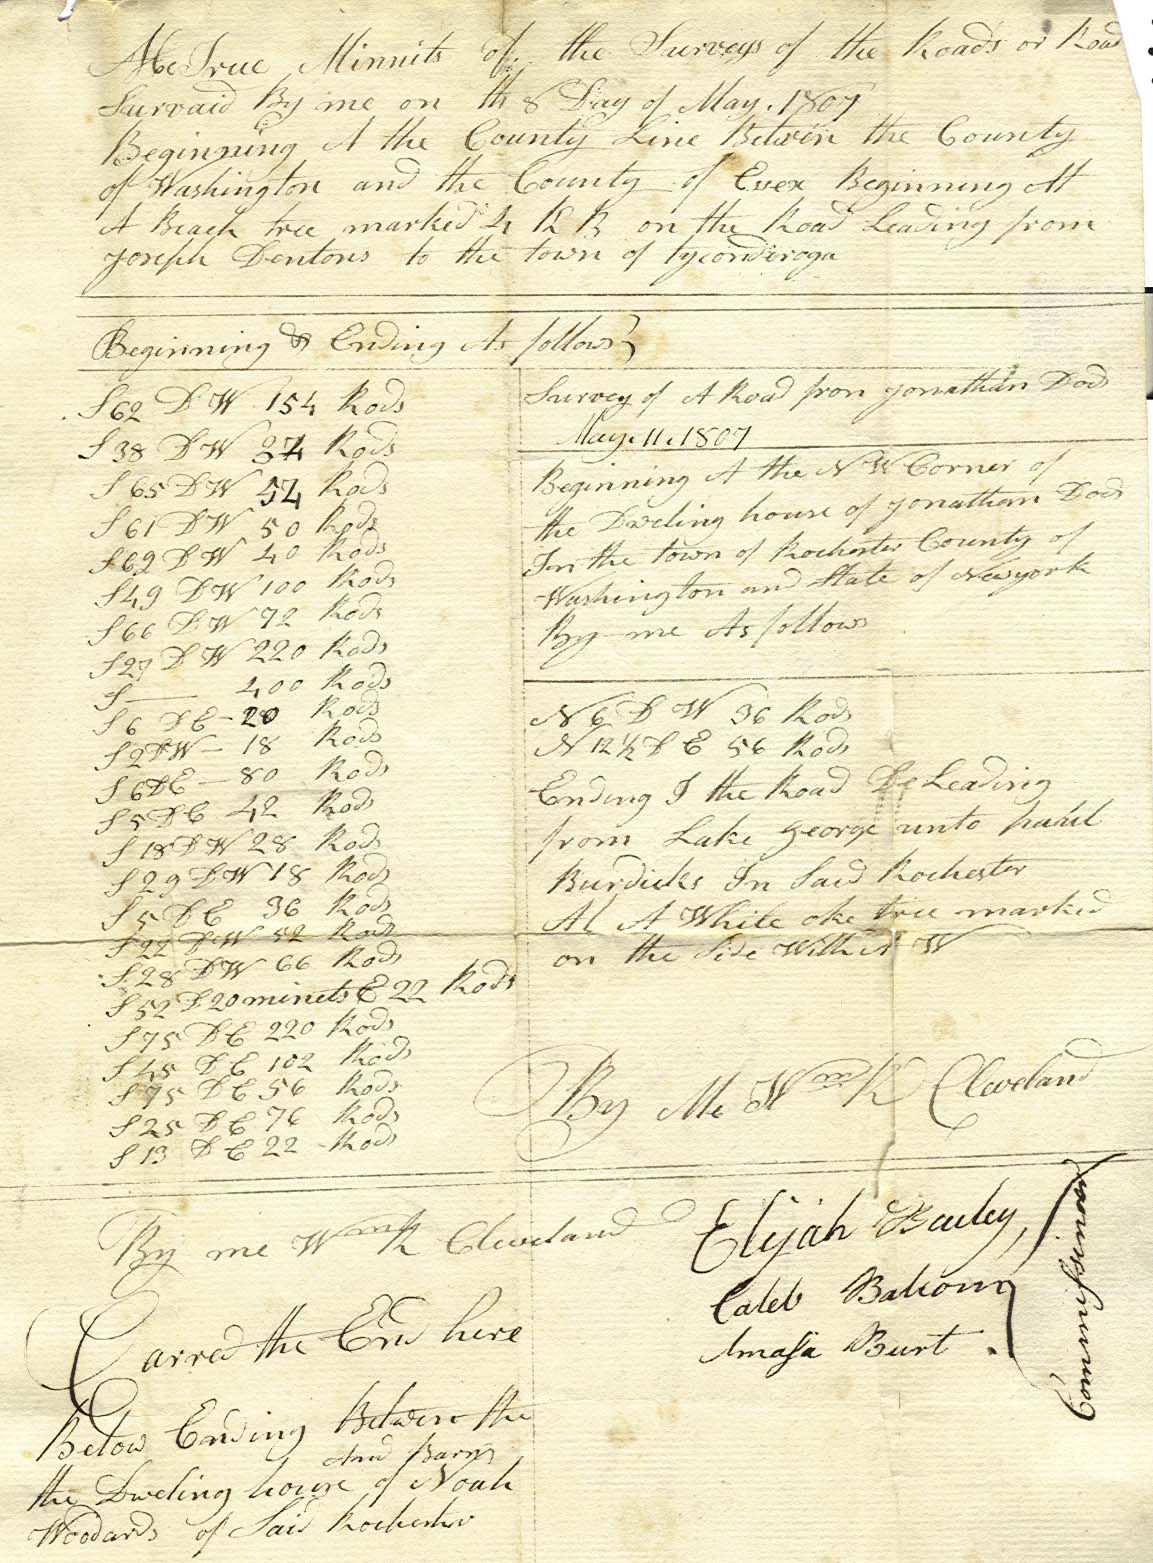 The True Minnits of the Surveys of the Roads or Road
Survaid By me on th 8 Day of May. 1807
Beginning At the County Line Betwin the County
of Washington and the County of Esex Beginning At
A Beach tree marked H R B on the Road Leading from
Joseph Dentons to the town of tyconderoga
Beginning & Ending As follows
S 62 D W 154 Rods
S 38 D W 374 Rods
S 65 D W 54 Rods
S 61 D W 50 Rods
S 69 D W 40 Rods
S 49 D W 100 Rods
S 66 D W 72 Rods
S 27 D W 220 Rods
S — 400 Rods
S 6 D E - 20 Rods
S 2 D W - 18 Rods
S 6 D E - 80 Rods
S 5 D E 42 Rods
S 18 D W 28 Rods
S 29 D W 18 Rods
S 5 D E 36 Rods
S 22 D W 52 Rods
S 28 D W 66 Rods
S 52 D 20 minets E 22 Rods
S 75 D E 220 Rods
S 45 D E 102 Rods
S 75 D E 56 Rods
S 25 D E 76 Rods
S 13 D E 22 Rods
Survey of A Road fron Jonathan Dods
May. 11. 1807
Beginning At the N W Corner of
the Dweling house of Jonathan Dods
In the town of Rochester County of
Washington and State of Newyork
By me As follows
N 6 D W 36 Rods
N 12 ½ D E 56 Rods
Ending I the Road Leading
from Lake George unto
Burdicks In Said Rochester
At A White oke tree marked
on the Side With A W
By Me Wm R Cleveland
By me Wm R Cleveland
Carred the End here
Below Ending Betwen the
And Barn
the Dweling house of Noah
Woodards of Said Rochester
Elijah Bailey,
Caleb Balcom
Amasa Burt.
Commissioners